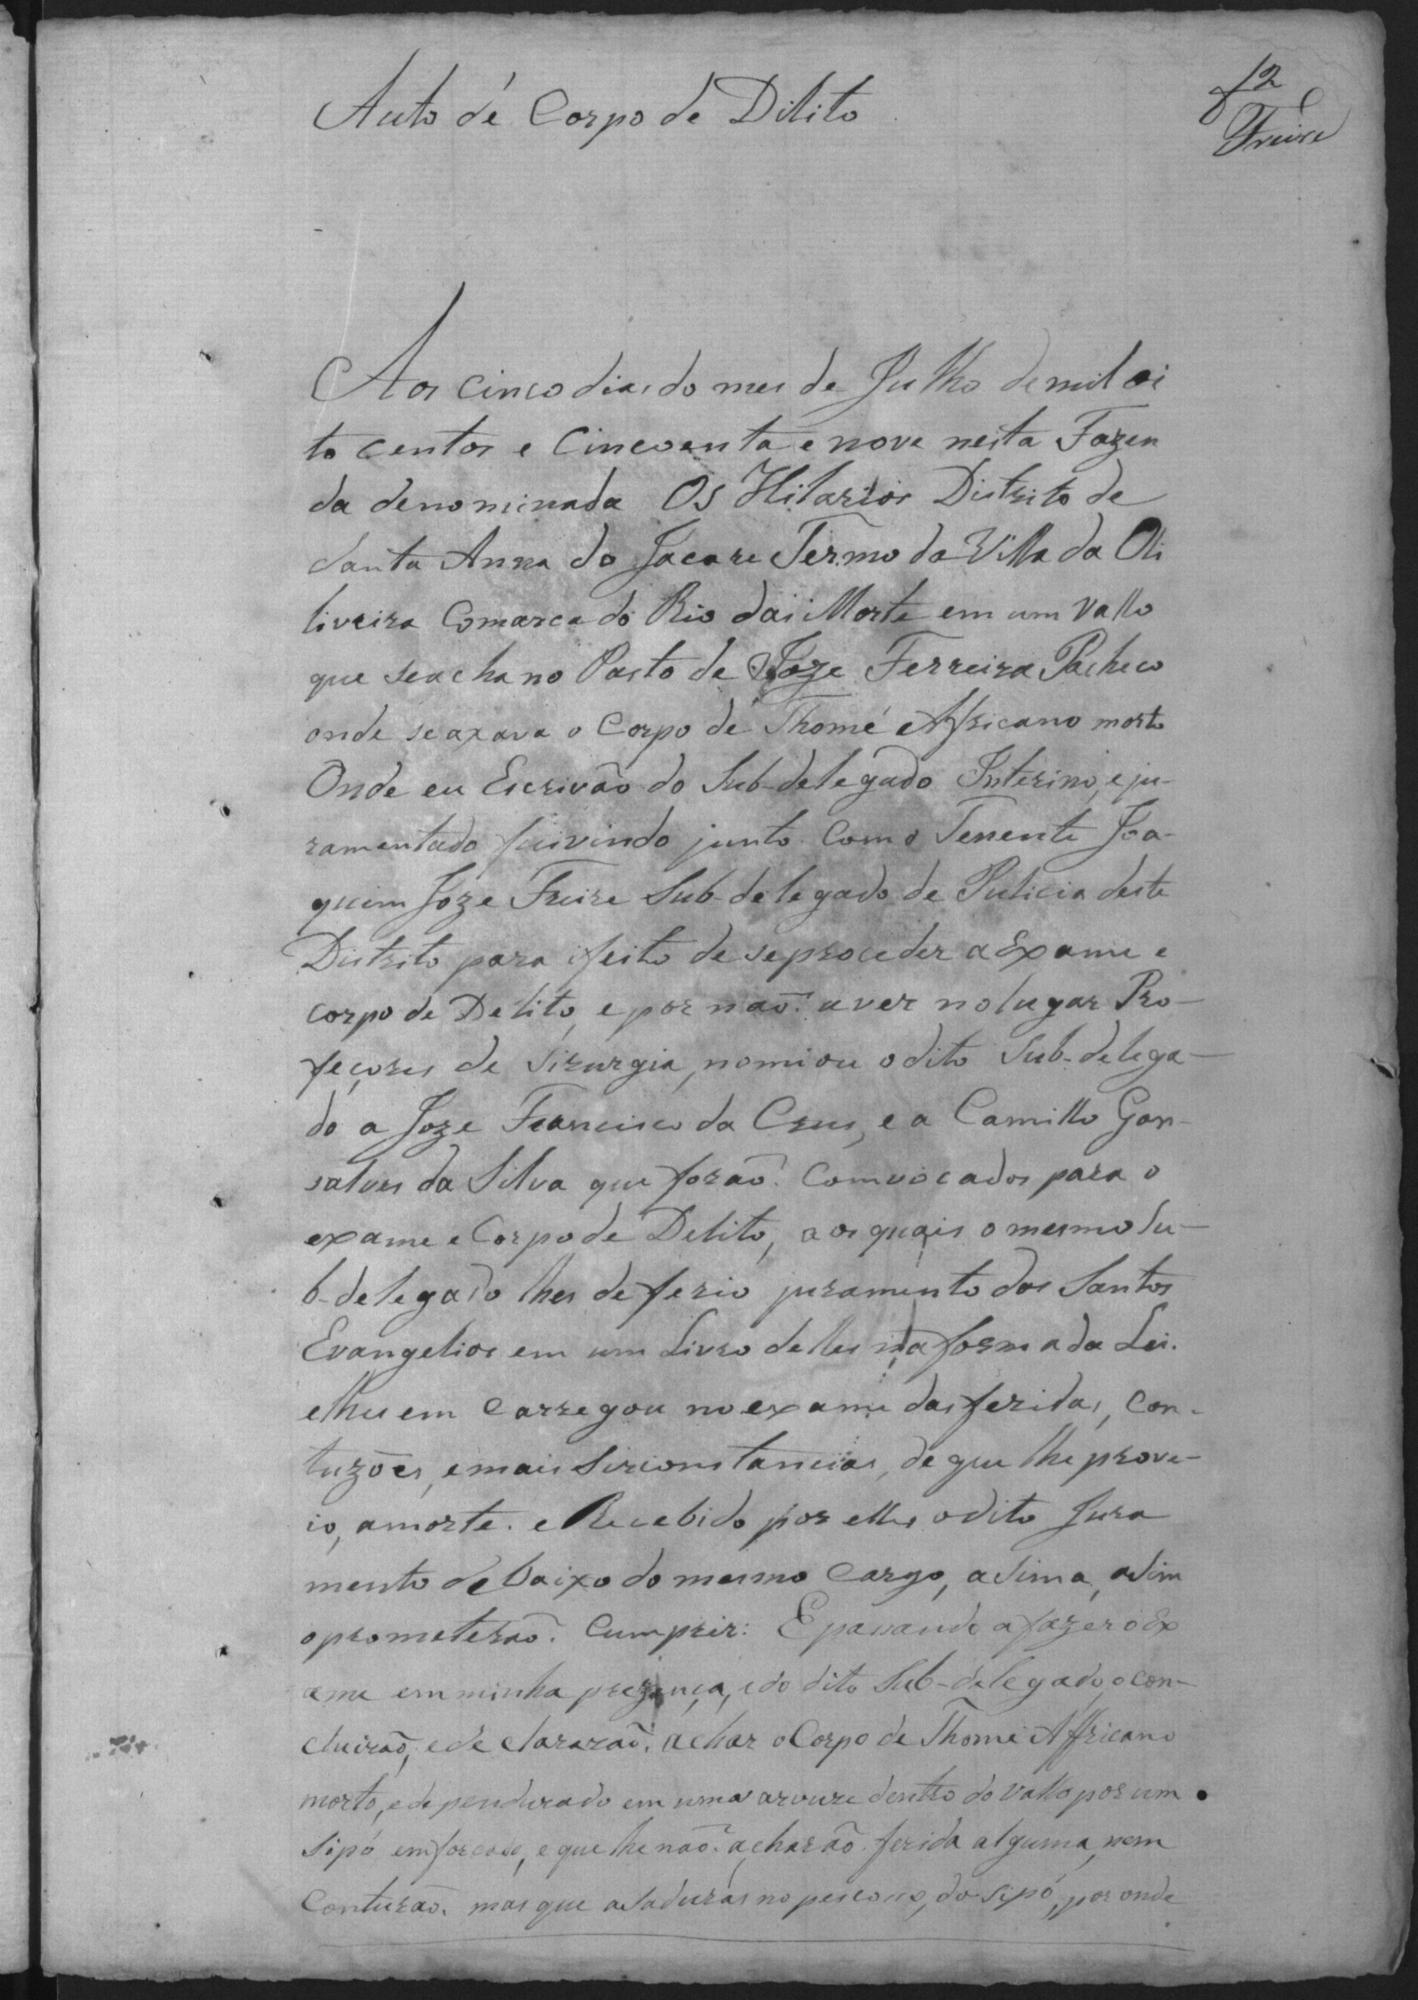 f 2
Freire
Auto dé Corpo de Dilito
Aos cinco dias do mes de Julho de mil oi
to centos e Cincoenta e nove nesta Fazen
da denominada Os Hilarios Distrito de
Santa Anna do Jacare Termo da Villa da Oli
liveira Comarca do Rio das Morte em um Vallo
que se acha no Pasto de Joze Ferreira Pacheco
onde se axava o Corpo de Thomé Africano morto
Onde eu Escrivão do Sub-delegado Interino, e ju-
ramentado fui vindo junto com o Tenente Joa-
quim Joze Freire Sub-delegado de Pulicia deste
Distrito para ifeito de se proceder a Exame e
corpo de Delito, e por não aver no lugar Pro-
feçores de Sirurgia, nomiou o dito Sub-delega-
do a Joze Francisco da Crus, e a Camillo Gon-
salves da Silva que forão comvocados para o
exame e Corpo de Delito, aos quais o mesmo Su-
b-delegado lhes deferio juramento dos Santos
Evangelios em um Livro delles na forma da Lei.
e lhes em carregou no exame das feridas, Con-
tuzões, e mais Sirconstancias, de que lhe prove-
io, a morte. e Recebido por elles o dito Jura
mento de baixo do mesmo Cargo, asima, asim
o prometerão Cumprir: E pasando a fazer o Ex
ame em minha prezença, e do dito Sub-delegado, o con-
cluirão, e de clararão, achar o Corpo de Thome Affricano
morto, e de pendurado em uma arvure dentro do Vallo por um
Sipó emforcado, e que lhe não acharão ferida alguma, nem
Contuzão, mas que asaduras no pescoso, do Sipó, por onde